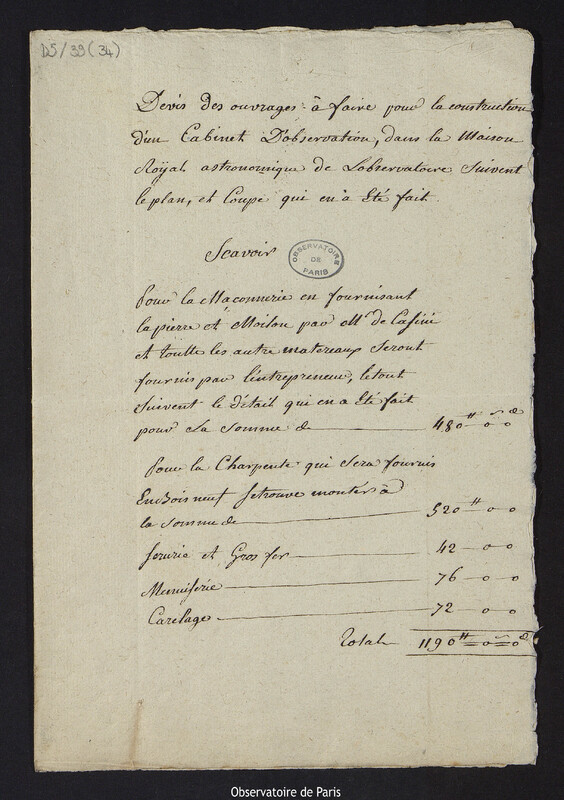 D5/39 (34)
Devis des ouvrages à faire pour la construction
d'un Cabinet D'observation, dans la Maison
Royal astronomique de Lobservatoire Suivent
le plan, et Coupe qui en à Eté fait
Scavoir
OBSERVATOIRE
DE
PARIS
pour la Maconnerie en fournisant
la pierre et Moilon par Mr de Cassini
et toutte les autre matereaux Seront
fournis par l'intrepreneur, le tout
Suivent le détail qui en a Eté fait
pour La Somme de 480 ₶ 0 s 0 d
pour la Charpente qui Sera fournis
En Bois neuf Se trouve montér à
la Somme de 520 ₶ 0 0
Serurie et Gros fer 42 0 0
Menuiserie 76 0 0
Carelage 72 0 0
Total 1190 ₶ 0 s 0 d
Observatoire de Paris